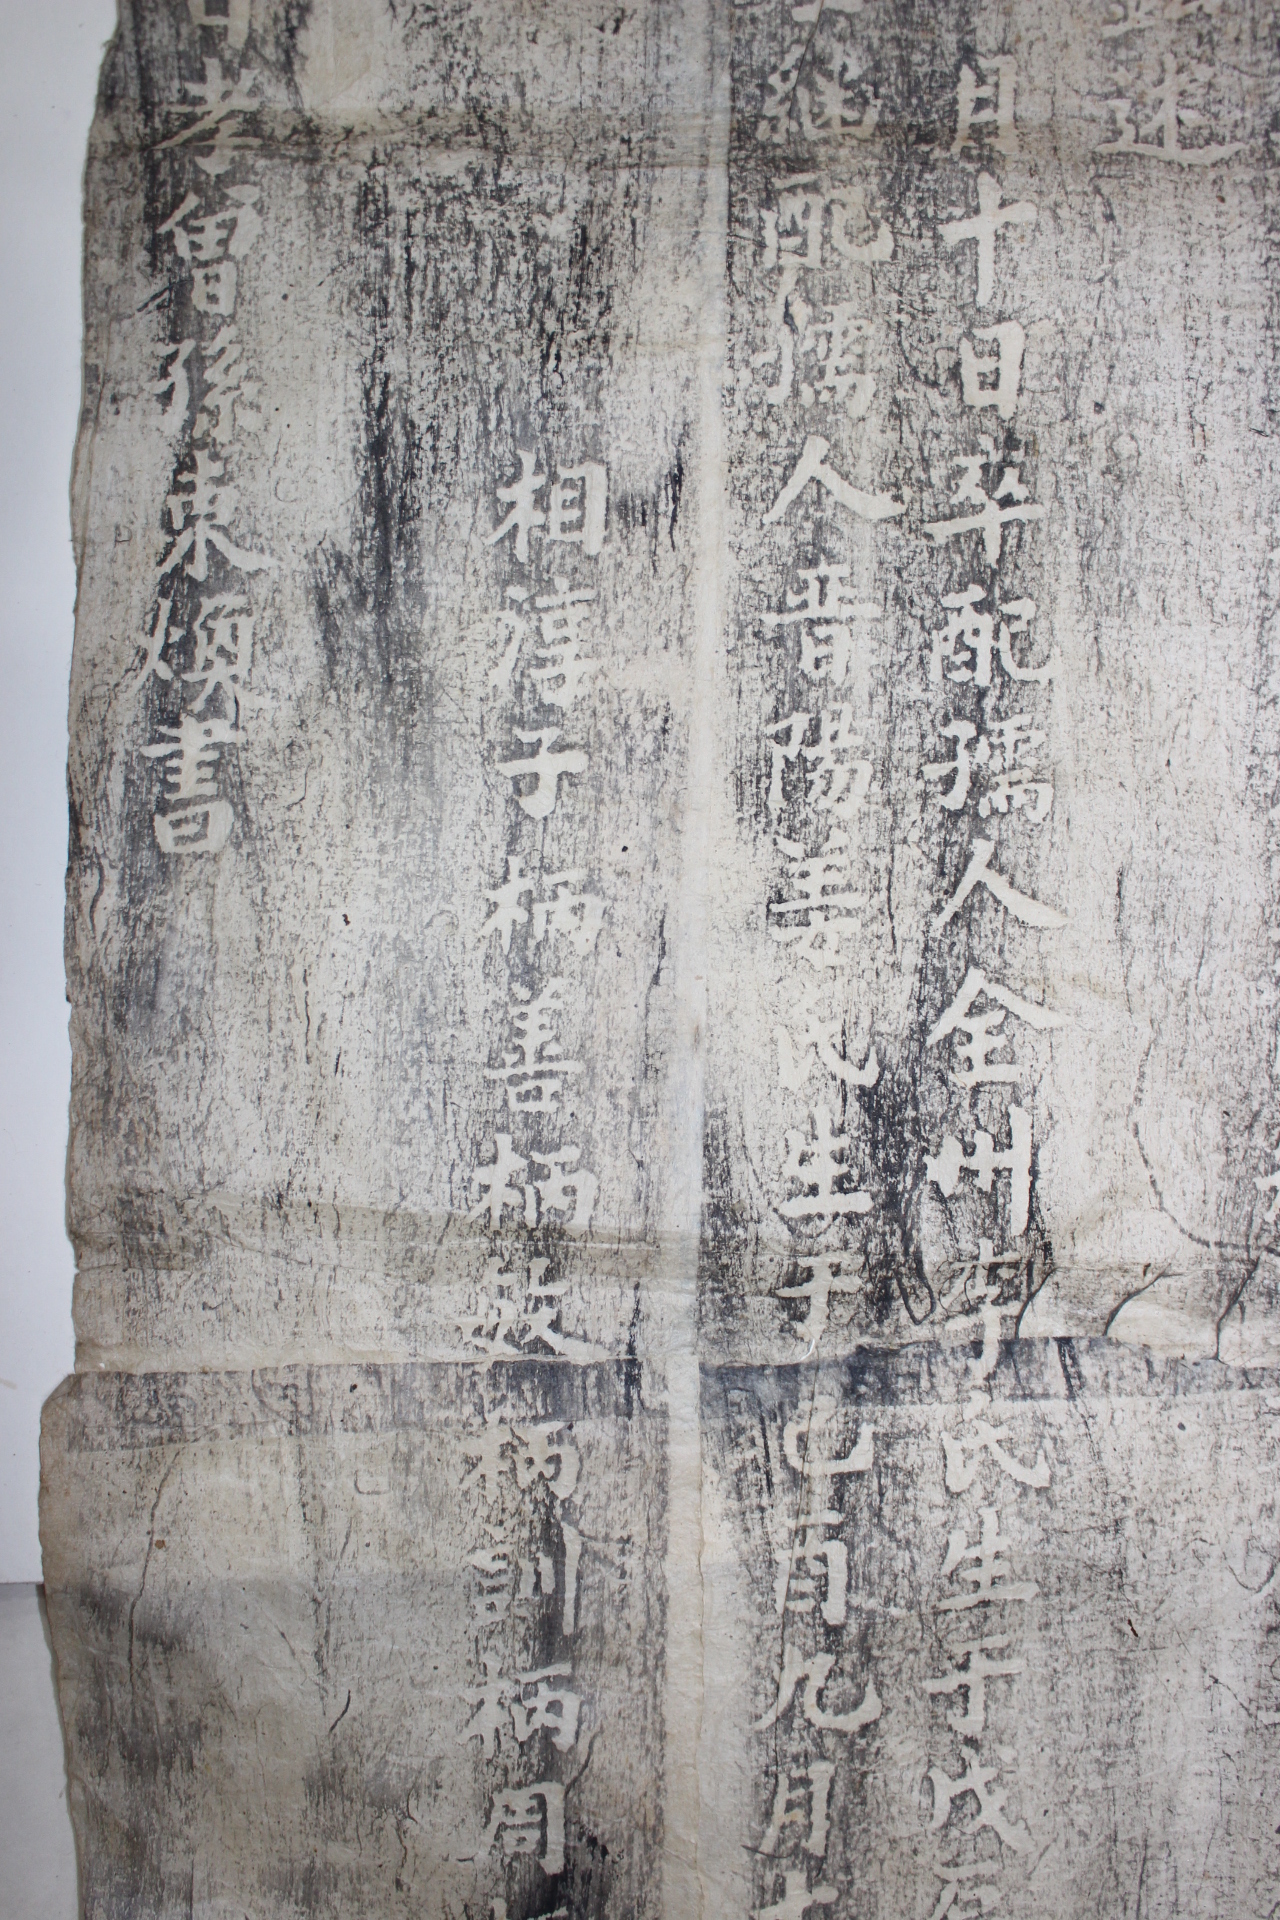 述
月十日卒配孺人全州李氏生于戊
繼配孺人晋陽姜氏生于己酉九月十
相淳子柄善柄敏柄訓柄周
孝曾孫東煥書